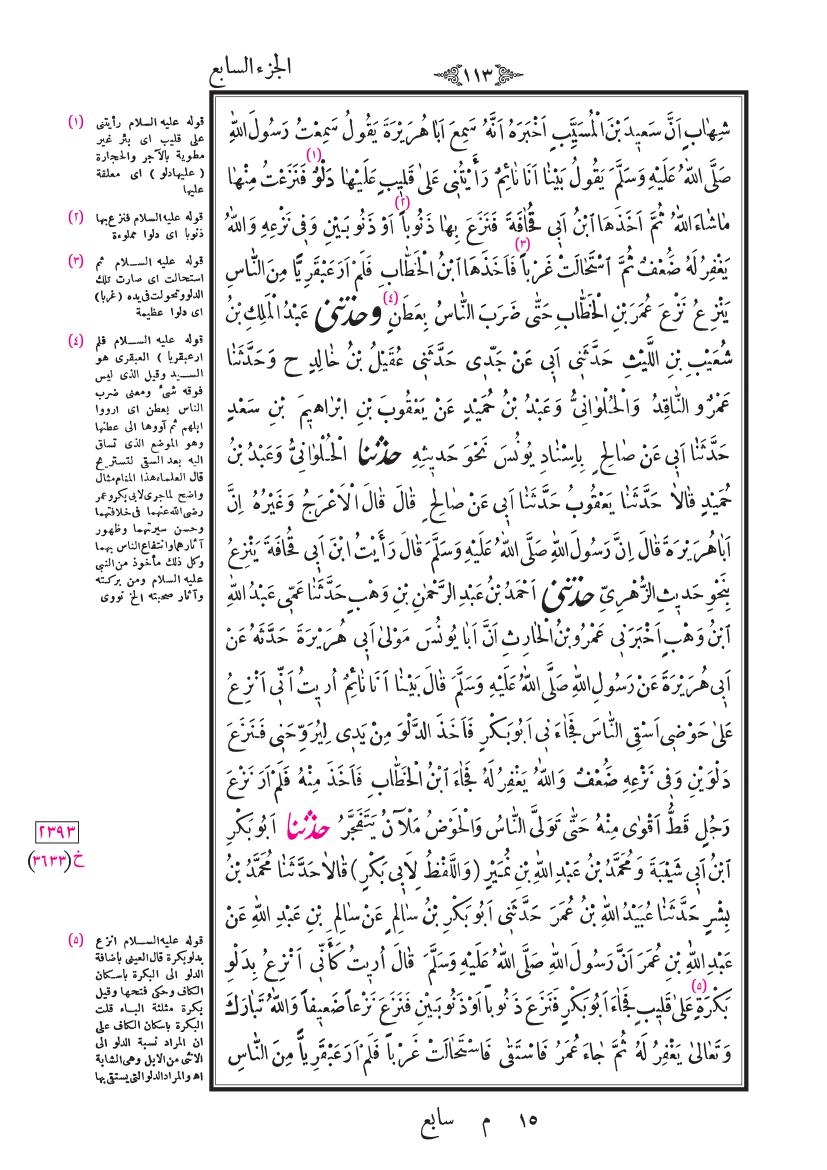 ١١٣
الجزء السابع
شِهَابٍ اَنَّ سَعِيدَ بْنَ الْمُسَيَّبِ اَخْبَرَهُ اَنَّهُ سَمِعَ اَبَا هُرَيْرَةَ يَقُولُ سَمِعْتُ رَسُولَ اللهِ
صَلَّى اللهُ عَلَيْهِ وَسَلَّمَ يَقُولُ بَيْنَا اَنَا نَائِمٌ رَأَيْتُنِى عَلَى قَلِيبٍ عَلَيْهَا دَلْوٌ (١) فَنَزَعْتُ مِنْهَا
مَاشَاءَ اللهُ ثُمَّ اَخَذَهَا ابْنُ اَبِى قُحَافَةَ فَنَزَعَ بِهَا ذَنُوباً (٢) اَوْ ذَنُوبَيْنِ وَفِى نَزْعِهِ وَاللهُ
يَغْفِرُ لَهُ ضُعْفٌ ثُمَّ اسْتَحَالَتْ غَرْباً (٣) فَاَخَذَهَا ابْنُ الْخَطَّابِ فَلَمْ اَرَ عَبْقَرِيًّا مِنَ النَّاسِ
يَنْزِعُ نَزْعَ عُمَرَ بْنِ الْخَطَّابِ حَتَّى ضَرَبَ النَّاسُ بِعَطَنٍ (٤) وحدثنى عَبْدُ الْمَلِكِ بْنُ
شُعَيْبِ بْنِ اللَّيْثِ حَدَّثَنِى اَبِى عَنْ جَدِّى حَدَّثَنِى عُقَيْلُ بْنُ خَالِدٍ ح وَحَدَّثَنَا
عَمْرٌو النَّاقِدُ وَالْحُلْوَانِىُّ وَعَبْدُ بْنُ حُمَيْدٍ عَنْ يَعْقُوبَ بْنِ اِبْرَاهِيمَ بْنِ سَعْدٍ
حَدَّثَنَا اَبِى عَنْ صَالِحٍ بِاِسْنَادِ يُونُسَ نَحْوَ حَدِيثِهِ حدثنا الْحُلْوَانِىُّ وَعَبْدُ بْنُ
حُمَيْدٍ قَالَا حَدَّثَنَا يَعْقُوبُ حَدَّثَنَا اَبِى عَنْ صَالِحٍ قَالَ قَالَ الْاَعْرَجُ وَغَيْرُهُ اِنَّ
اَبَا هُرَيْرَةَ قَالَ اِنَّ رَسُولَ اللهِ صَلَّى اللهُ عَلَيْهِ وَسَلَّمَ قَالَ رَأَيْتُ ابْنَ اَبِى قُحَافَةَ يَنْزِعُ
بِنَحْوِ حَدِيثِ الزُّهْرِىِّ حدثنى اَحْمَدُ بْنُ عَبْدِ الرَّحْمٰنِ بْنِ وَهْبٍ حَدَّثَنَا عَمِّى عَبْدُ اللهِ
ابْنُ وَهْبٍ اَخْبَرَنِى عَمْرُو بْنُ الْحَارِثِ اَنَّ اَبَا يُونُسَ مَوْلَى اَبِى هُرَيْرَةَ حَدَّثَهُ عَنْ
اَبِى هُرَيْرَةَ عَنْ رَسُولِ اللهِ صَلَّى اللهُ عَلَيْهِ وَسَلَّمَ قَالَ بَيْنَا اَنَا نَائِمٌ اُرِيتُ اَنِّى اَنْزِعُ
عَلَى حَوْضِى اَسْقِى النَّاسَ فَجَاءَنِى اَبُو بَكْرٍ فَاَخَذَ الدَّلْوَ مِنْ يَدِى لِيُرَوِّحَنِى فَنَزَعَ
دَلْوَيْنِ وَفِى نَزْعِهِ ضُعْفٌ وَاللهُ يَغْفِرُ لَهُ فَجَاءَ ابْنُ الْخَطَّابِ فَاَخَذَ مِنْهُ فَلَمْ اَرَ نَزْعَ
رَجُلٍ قَطُّ اَقْوٰى مِنْهُ حَتَّى تَوَلَّى النَّاسُ وَالْحَوْضُ مَلْآنُ يَتَفَجَّرُ حدثنا اَبُو بَكْرِ
ابْنُ اَبِى شَيْبَةَ وَمُحَمَّدُ بْنُ عَبْدِ اللهِ بْنِ نُمَيْرٍ (وَاللَّفْظُ لِاَبِى بَكْرٍ) قَالَا حَدَّثَنَا مُحَمَّدُ بْنُ
بِشْرٍ حَدَّثَنَا عُبَيْدُ اللهِ بْنُ عُمَرَ حَدَّثَنِى اَبُو بَكْرِ بْنُ سَالِمٍ عَنْ سَالِمِ بْنِ عَبْدِ اللهِ عَنْ
عَبْدِ اللهِ بْنِ عُمَرَ اَنَّ رَسُولَ اللهِ صَلَّى اللهُ عَلَيْهِ وَسَلَّمَ قَالَ اُرِيتُ كَأَنِّى اَنْزِعُ بِدَلْوِ
بَكْرَةٍ (٥) عَلَى قَلِيبٍ فَجَاءَ اَبُو بَكْرٍ فَنَزَعَ ذَنُوباً اَوْ ذَنُوبَيْنِ فَنَزَعَ نَزْعاً ضَعِيفاً وَاللهُ تَبَارَكَ
وَتَعَالَى يَغْفِرُ لَهُ ثُمَّ جَاءَ عُمَرُ فَاسْتَقٰى فَاسْتَحَالَتْ غَرْباً فَلَمْ اَرَ عَبْقَرِيًّا مِنَ النَّاسِ
(١) قوله عليه السلام رأيتنى
على قليب اى بئر غير
مطوية بالآجر والحجارة
(عليها دلو) اى معلقة
عليها
(٢) قوله عليه السلام فنزع بها
ذنوبا اى دلوا مملوءة
(٣) قوله عليه السلام ثم
استحالت اى صارت تلك
الدلو وتحولت فى يده (غربا)
اى دلوا عظيمة
(٤) قوله عليه السلام فلم
ار عبقريا) العبقرى هو
السيد وقيل الذى ليس
فوقه شئ ومعنى ضرب
الناس بعطن اى ارووا
ابلهم ثم آووها الى عطنها
وهو الموضع الذى تساق
اليه بعد السقى لتستريح
قال العلماء هذا المنام مثال
واضح لما جرى لابى بكر وعمر
رضى الله عنهما فى خلافتهما
وحسن سيرتهما وظهور
آثارهما وانتفاع الناس بهما
وكل ذلك مأخوذ من النبى
عليه السلام ومن بركته
وآثار صحبته الخ نووى
٢٣٩٣
خ (٣٦٣٣)
(٥) قوله عليه السلام انزع
بدلو بكرة قال العينى باضافة
الدلو الى البكرة باسكان
الكاف وحكى فتحها وقيل
بكرة مثلثة الباء قلت
البكرة باسكان الكاف على
ان المراد نسبة الدلو الى
الانثى من الابل وهى الشابة
اه والمراد الدلو التى يستقى بها
١٥ م سابع